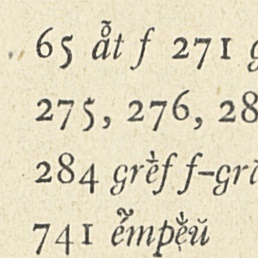 65 ẩt f 271 g
275, 276, 28
284 grèf f-gr
741 empẹ̀ŭ